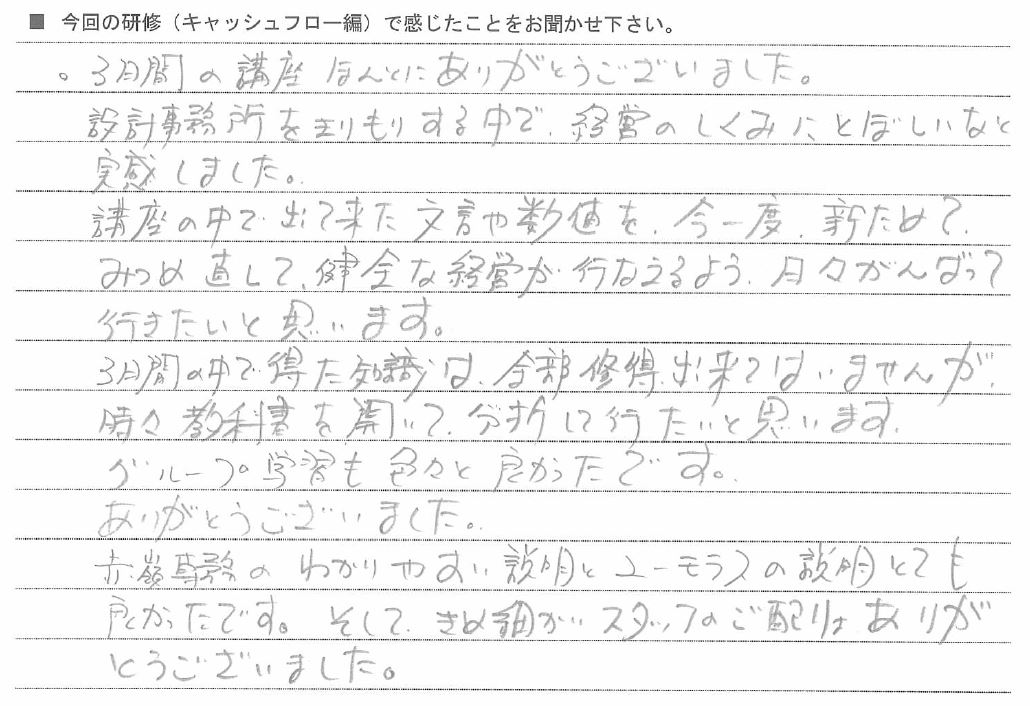 ■ 今回の研修（キャッシュフロー編）で感じたことをお聞かせ下さい。
。3月間の講座 ほんとにありがとうございました。
設計事務所をきりもりする中で、経営のしくみにとぼしいなと
実感しました。
講座の中で出て来た文言や数値を、今一度、新ためて、
みつめ直して、健全な経営が行なえるよう、日々がんばって
行きたいと思います。
3月間の中で得た知識は、全部修得出来てはいませんが、
時々教科書を開いて、分析して行たいと思います。
グループ学習も色々と良かったです。
ありがとうございました。
赤嶺専務のわかりやすい説明とユーモラスの説明とても
良かったです。そして、きめ細かいスタッフのご配りょありが
とうございました。